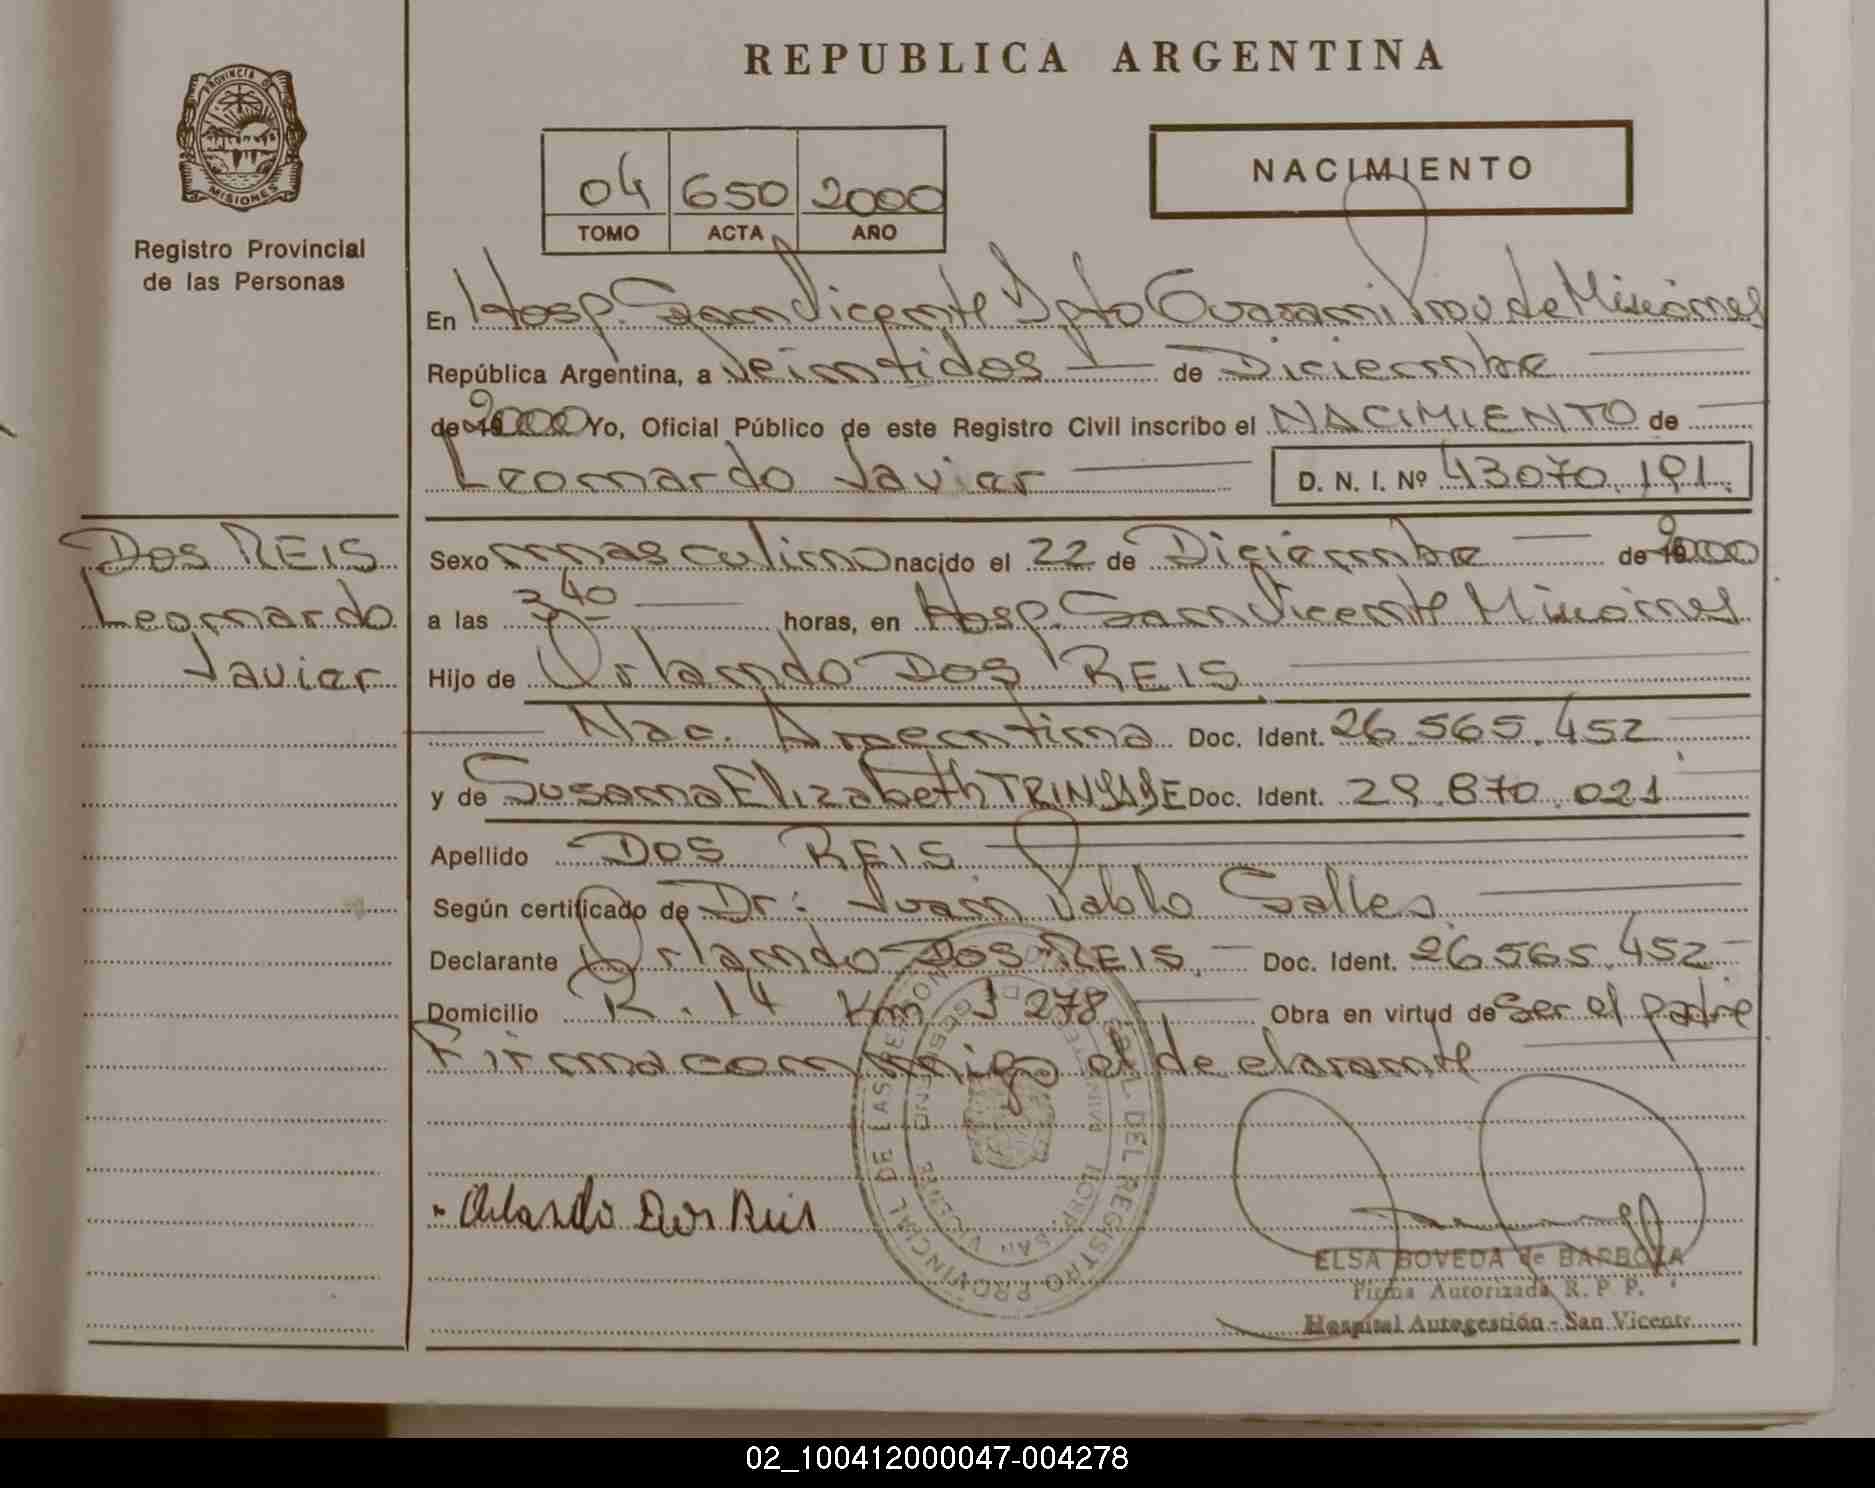 REPUBLICA ARGENTINA
PROVINCIA DE MISIONES
Registro Provincial
de las Personas
04 650 2000
TOMO ACTA AÑO
NACIMIENTO
En Hosp. San Vicente Dpto Guarani Prov de Misiones
República Argentina, a Veintidos de Diciembre
de 2000 Yo, Oficial Público de este Registro Civil inscribo el NACIMIENTO de
Leonardo Javier D. N. I. Nº 43070.191.
Dos REIS
Leonardo
Javier
Sexo masculino nacido el 22 de Diciembre de 2000
a las 3,40 horas, en Hosp. San Vicente Misiones
Hijo de Orlando Dos REIS
Nac. Argentina Doc. Ident. 26.565.452
y de Susana Elizabeth Doc. Ident. 29.870.021
Apellido Dos REIS
Según certificado de Dr: Juan Pablo Salles
Declarante Orlando Dos REIS. Doc. Ident. 26.565.452
Domicilio R. 14 Km 1278 Obra en virtud de ser el padre
Firma conmigo el declarante
Orlando Dos Reis
ELSA BOVEDA de BARBOZA
Firma Autorizada R. P. P.
Hospital Autogestión - San Vicente
02_100412000047-004278